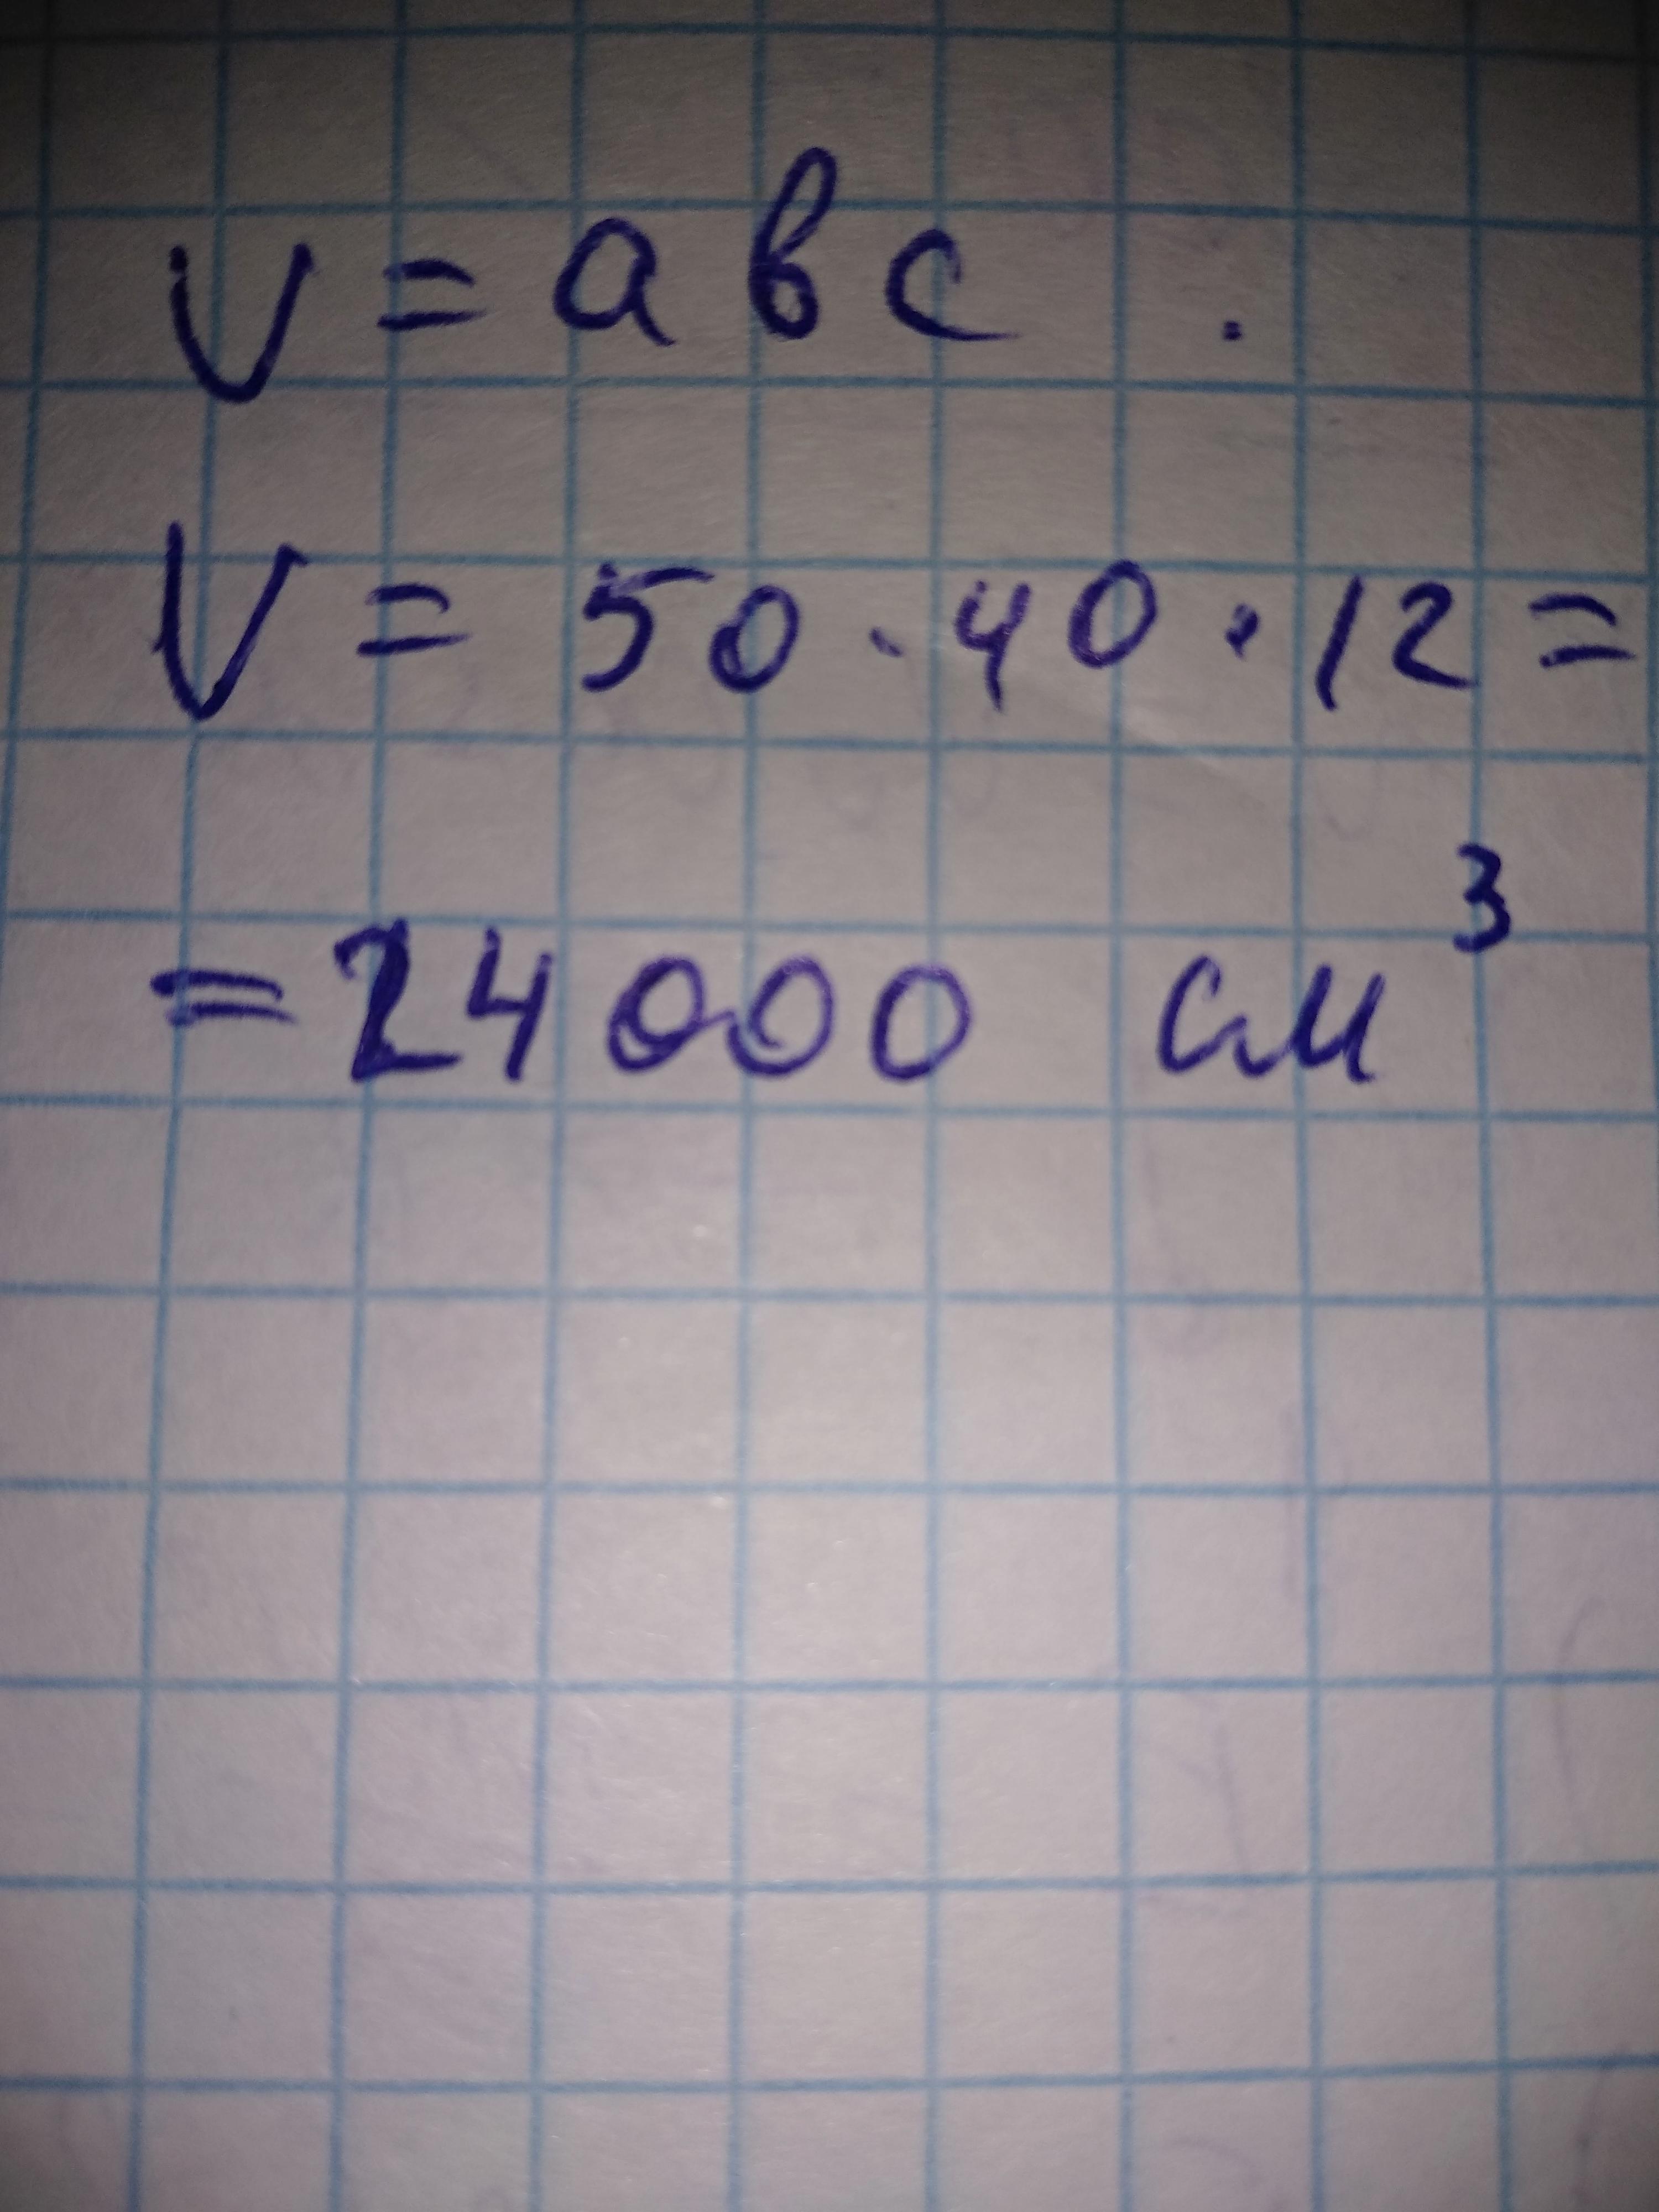 V = abc .
V = 50 · 40 · 12 =
= 24000 см³